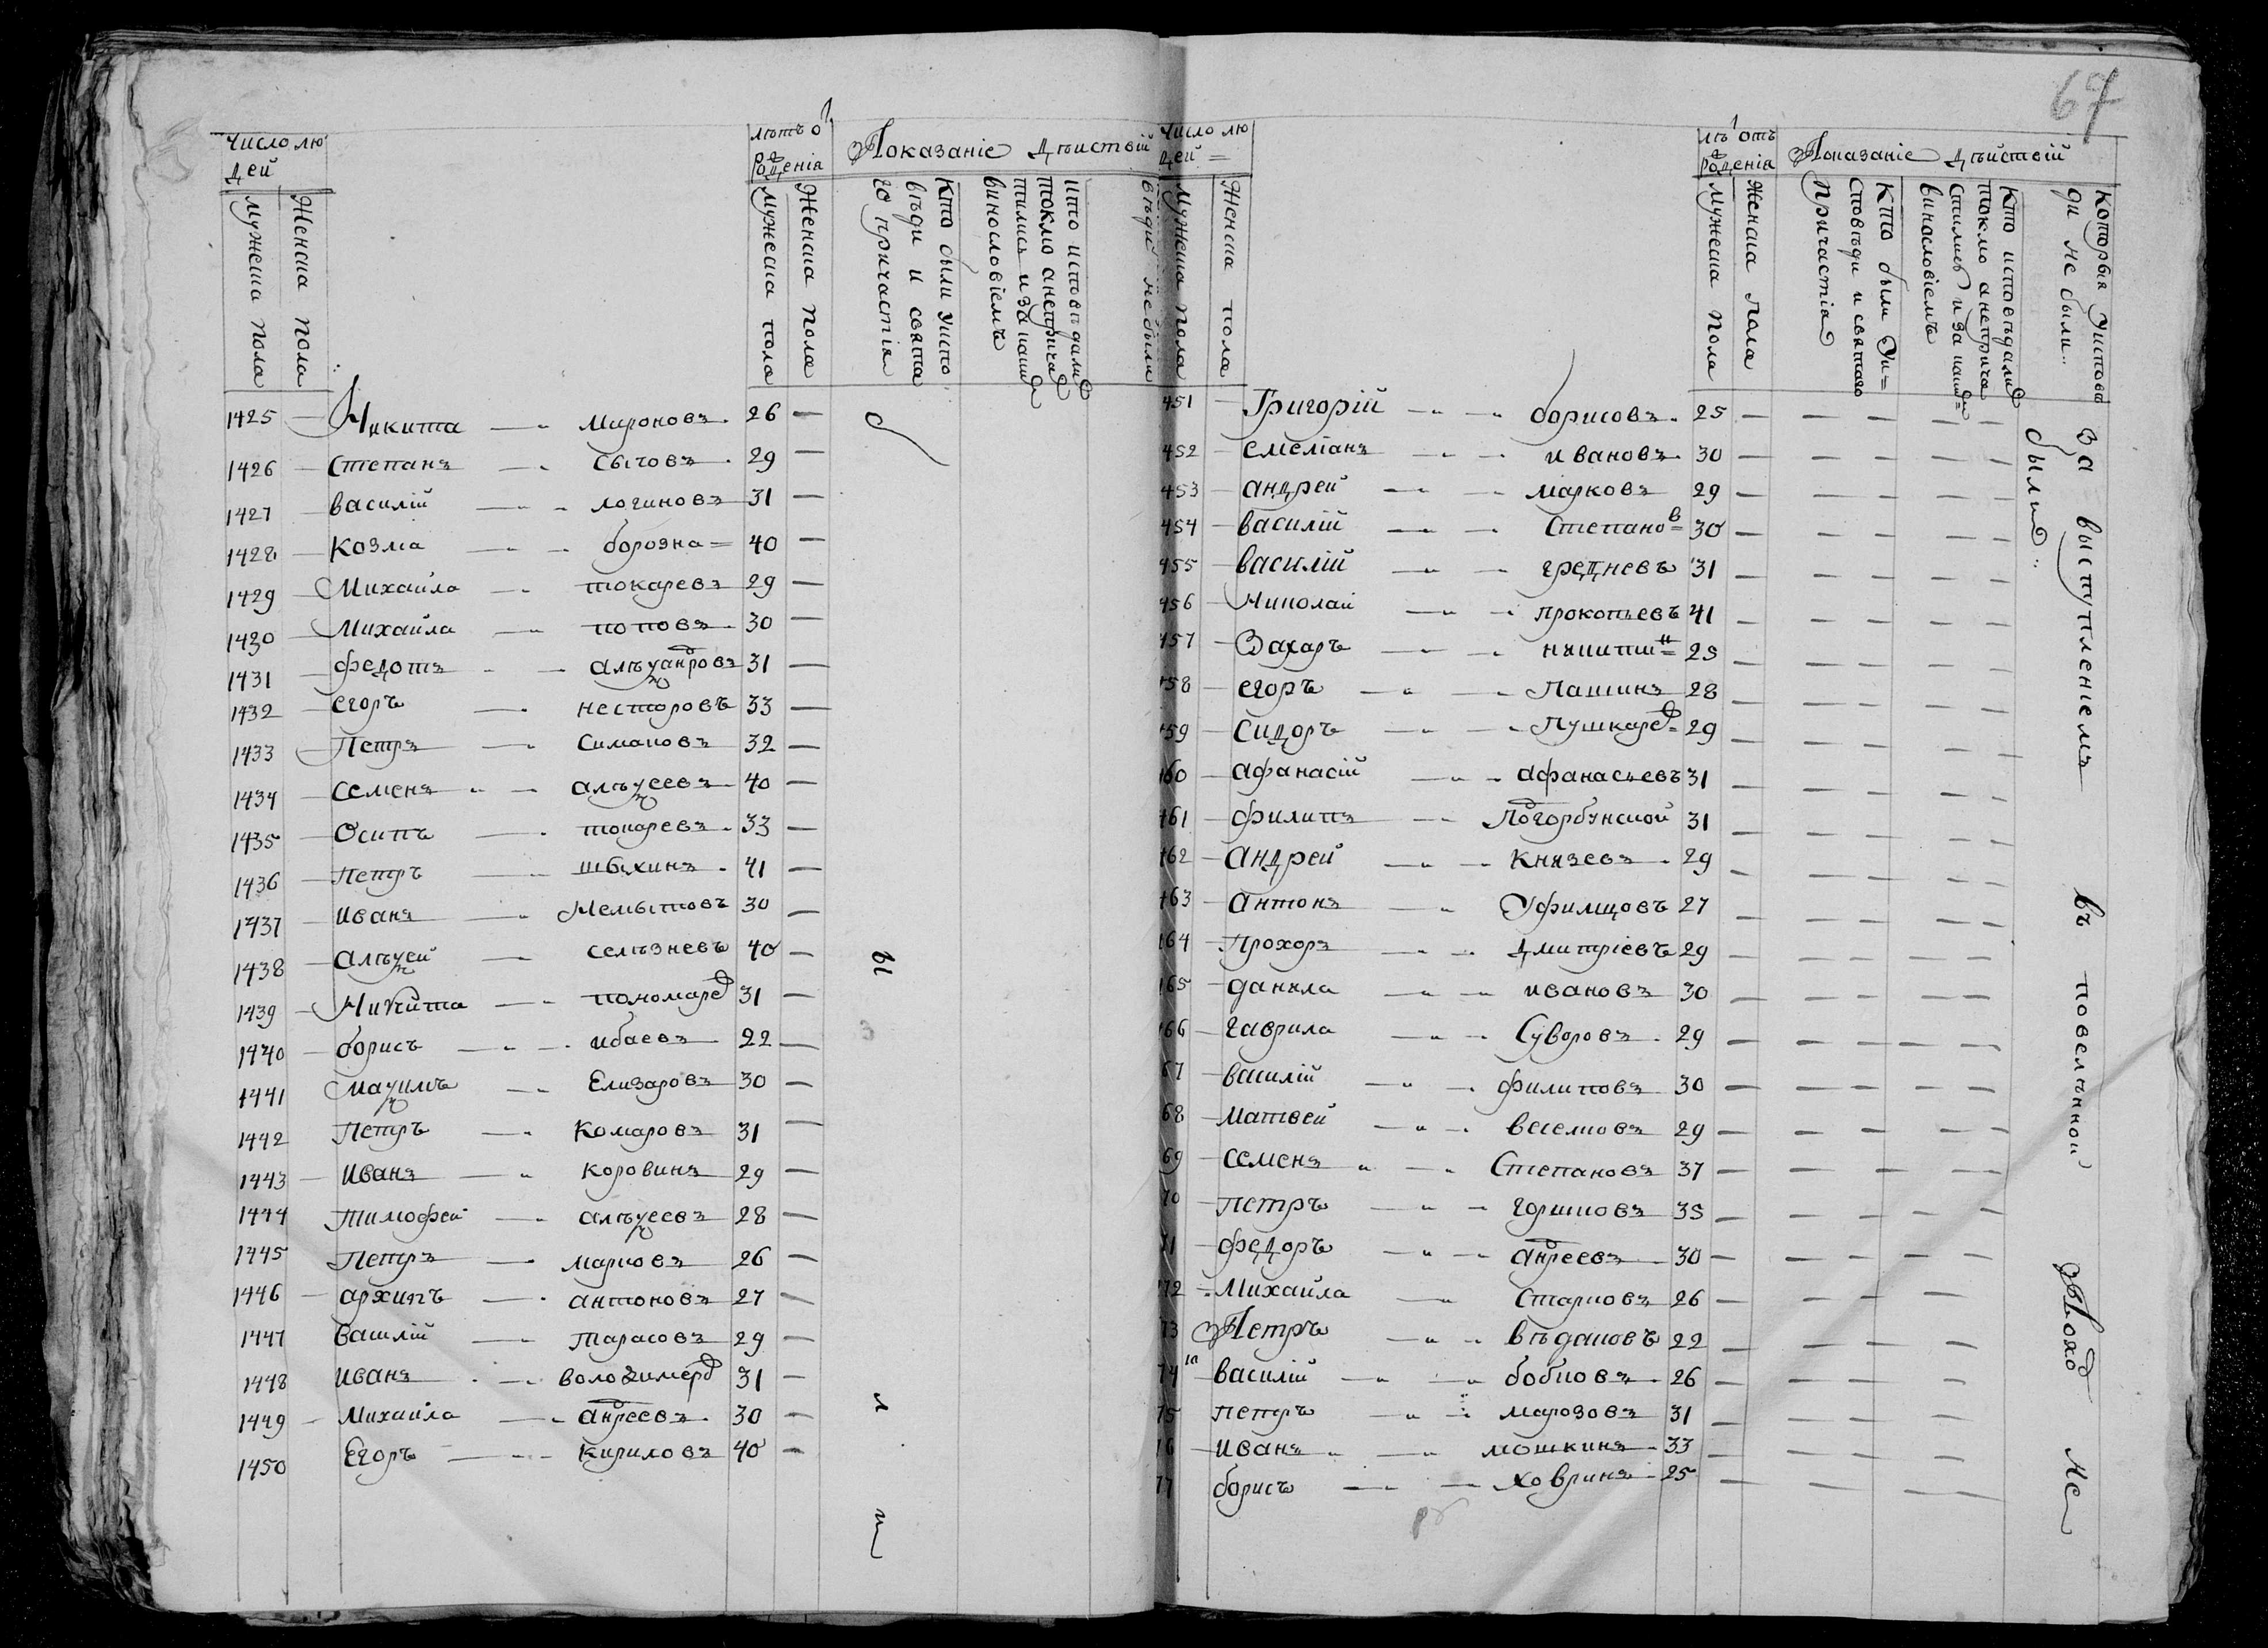 67
Число лю
дей
мужеска пола
Женска пола
лѣтъ о
рожденія
мужеска пола
Женска пола
Показаніе дѣиствій
Кто были уиспо
вѣди и свята
го причастія
кто исповѣдали
токмо анеприча
тились и за каки
винословіемъ
вѣди небыли
1425 — Никита — Мироновъ 26 —
1426 — Степанъ — Сычовъ 29 —
1427 — василій — логиновъ 31 —
1428 — Козма — борозна 40 —
1429 — Михайла — токаревъ 29 —
1430 — Михайла — поповъ 30 —
1431 — федотъ — алеѯандровъ 31 —
1432 — егоръ — несторовъ 33 —
1433 — Петръ — Симановъ 32 —
1434 — семенъ — алеѯеевъ 40 —
1435 — Осипъ — токаревъ 33 —
1436 — Петръ — шыхинъ 41 —
1437 — иванъ — Немытовъ 30 —
1438 — алеѯей — селезневъ 40 —
1439 — Никита — пономарев 31 —
1440 — борисъ — ибаевъ 22 —
1441 маѯимъ — Елизаровъ 30 —
1442 Петръ — Комаровъ 31 —
1443 — иванъ — коровинъ 29 —
1444 тимофей — алеѯеевъ 28 —
1445 Петръ — марковъ 26 —
1446 — архипъ — антоновъ 27 —
1447 василій — тарасовъ 29 —
1448 иванъ — володимеров 31 —
1449 — Михайла — андреевъ 30 —
1450 Егоръ — кириловъ 40 —
б
ы
л
и
Число лю
дей
мужеска пола
Женска пола
лѣтъ отъ
рожденія
мужеска пола
Женска пола
Показаніе дѣйствій
Кто были уи=
споведи и святаго
причастія
Кто исповѣдали
токмо анеприча
стились и за каким
винословіемъ
Которыя уиспове
ди не были
451 — Григорій — борисовъ 25 —
452 — емеліанъ — ивановъ 30 —
453 — андрей — марковъ 29 —
454 — василій — Степанов 30 —
455 — василій — гредневъ 31 —
456 — Николай — прокопьевъ 41 —
457 — Захаръ — никитин 25 —
458 — егоръ — Пашинъ 28 —
459 — Сидоръ — Пушкарев 29 —
460 — афанасій — афанасьевъ 31 —
461 — филипъ — Подгорбунской 31 —
462 — андрей — Князевъ 29 —
463 — антонъ — Уфимцовъ 27 —
464 — Прохоръ — дмитріевъ 29 —
465 — данила — ивановъ 30 —
466 — гаврила — Суворовъ 29 —
67 — василій — филиповъ 30 —
68 — матвей — веселковъ 29 —
69 — семенъ — Степановъ 37 —
70 — петръ — горшковъ 35 —
71 — федоръ — андреевъ 30 —
72 — Михайла — Старковъ 26 —
73 Петръ — вѣдаковъ 22 —
74 — василій — бобковъ 26 —
75 петръ — марозовъ 31 —
76 — иванъ — мошкинъ 33 —
77 борисъ — ховринъ 25 —
За выступленіемъ въ повелѣнной Поход Не
были